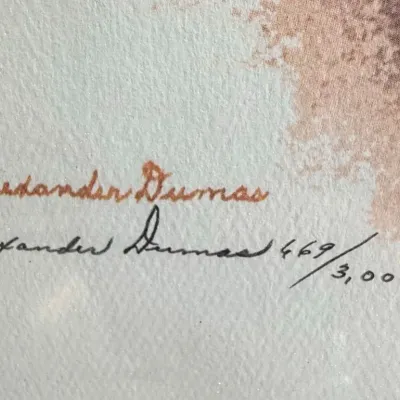 exander Dumas
xander Dumas 469/3,00